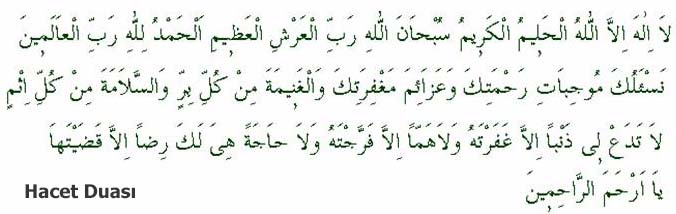 لَا اِلٰهَ اِلاَّ اللّٰهُ الْحَلِيمُ الْكَرِيمُ سُبْحَانَ اللّٰهِ رَبِّ الْعَرْشِ الْعَظِيمِ اَلْحَمْدُ لِلّٰهِ رَبِّ الْعَالَمِينَ
نَسْئَلُكَ مُوجِبَاتِ رَحْمَتِكَ وَعَزَائِمَ مَغْفِرَتِكَ وَالْغَنِيمَةَ مِنْ كُلِّ بِرٍّ وَالسَّلَامَةَ مِنْ كُلِّ اِثْمٍ
لاَ تَدَعْ لِى ذَنْباً اِلاَّ غَفَرْتَهُ وَلاَهَمّاً اِلاَّ فَرَّجْتَهُ وَلاَ حَاجَةً هِىَ لَكَ رِضاً اِلاَّ قَضَيْتَهَا
يَا اَرْحَمَ الرَّاحِمِينَ
Hacet Duası